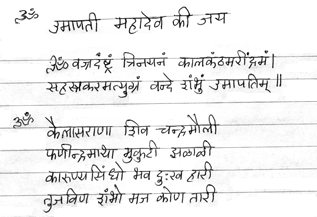 ॐ उमापती महादेव की जय
ॐ वज्रदंष्ट्रं त्रिनयनं कालकंठमरींद्रमं।
सहस्त्रकरमत्युग्रं वन्दे शंभुं उमापतिम् ॥
ॐ कैलासराणा शिव चन्द्रमौली
फणीन्द्रमाथा मुकुटी झळाळी
कारुण्यसिंधो भव दुःख हारी
तुजविण शंभो मज कोण तारी